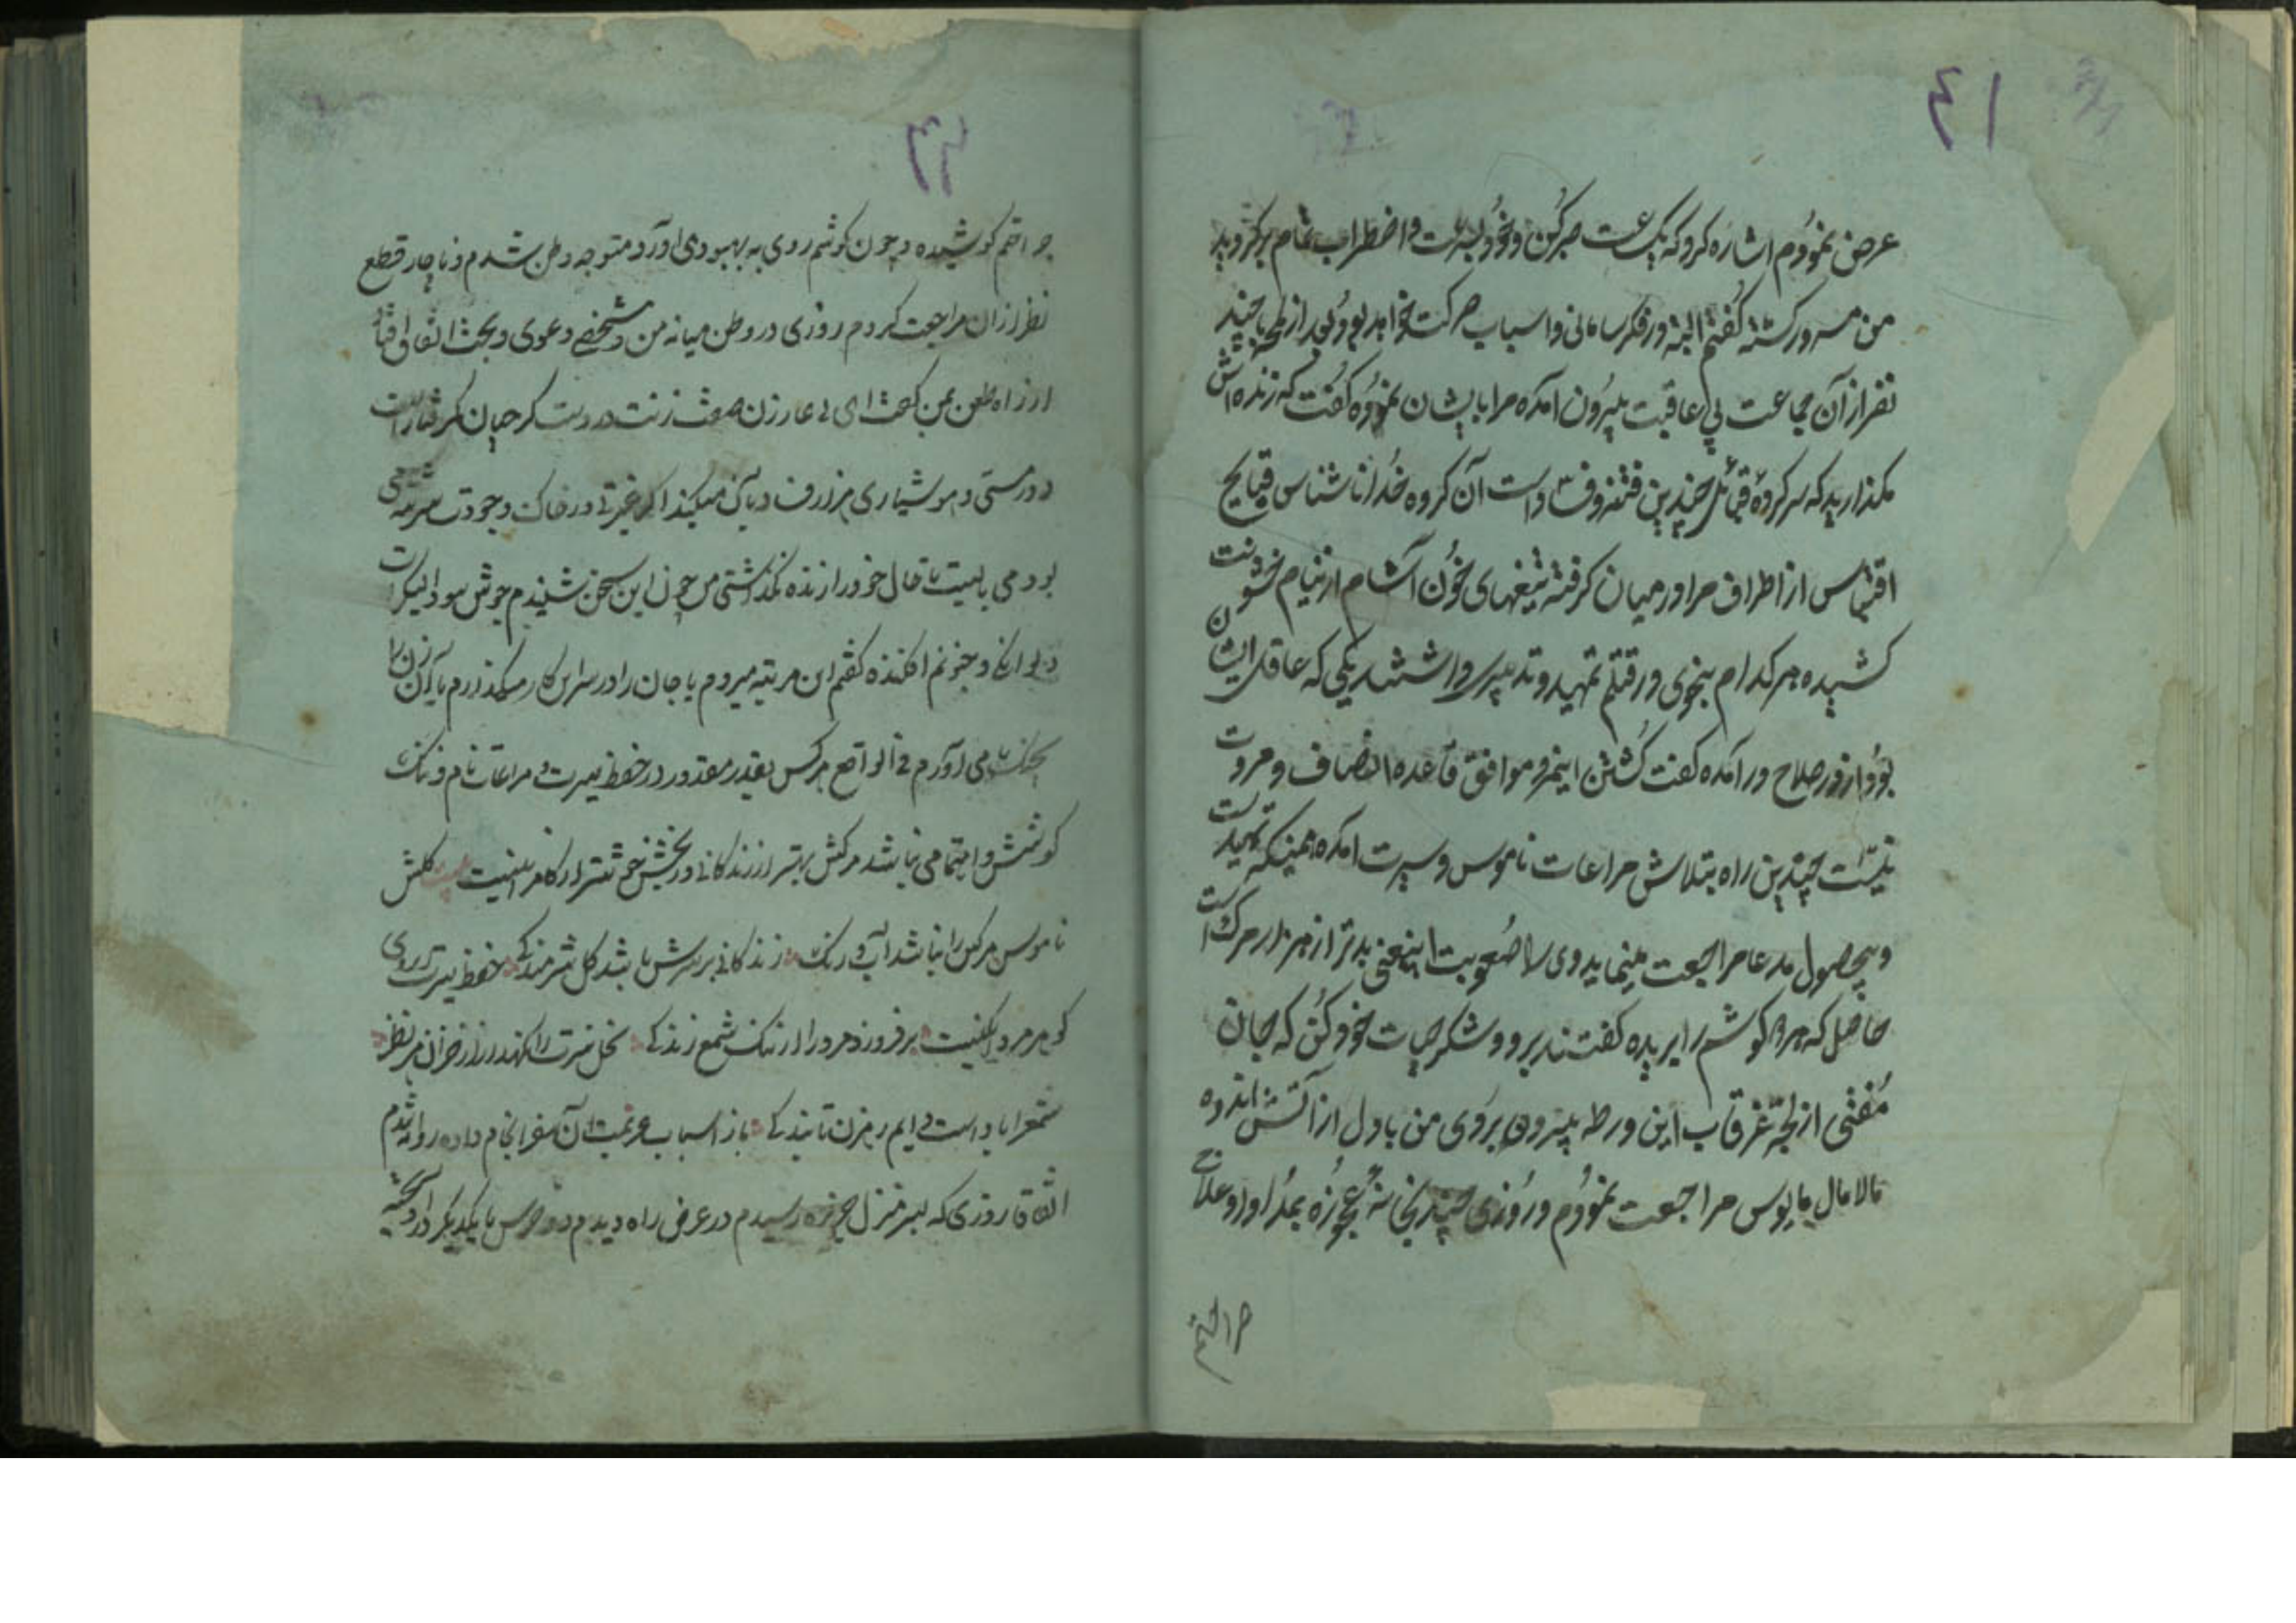 ۴۱
عرض نمودم اشاره کرد که یکساعت صبر کن و خود بسرعت و اضطراب تمام برگردید
من مسرور گشته گفتم البته در فکر سامانی و اسباب حرکت خواهد بود بعد از لمحه با چند
نفر از آن جماعت بی عاقبت بیرون آمده مرا بایشان نموده گفت که زنده اش
مگذارید که سرکرده قبائل چندین فتنه و فساد است آن گروه خدا ناشناس قبایح
اقتباس از اطراف مرا در میان گرفته تیغهای خون آشام از نیام خشونت
کشیده هر کدام بنحوی در قتلم تمهید و تدبیری داشتند یکی که عاقل ایشان
بود از در صلاح در آمده گفت کشتن اینمرد موافق قاعده انصاف و مروت
نیست چندین راه بتلاش مراعات ناموس و سیرت امده همینکه تهیدست
و بیحصول مدعا مراجعت مینماید وی را صعوبت اینمعنی بدتر از هزار مرگ است
حاصل که هر دو گوشم را بریده گفتند برو و شکر حیات خود کن که جان
مفتی از لجه غرقاب این ورطه بیرون بردی من با دل از آتش اندوه
مالامال مایوس مراجعت نمودم و روزی چند بخانه عجوزه بمداوا و علاج
جراحتم
۴۲
جراحتم کوشیده و چون گوشم روی به بهبودی آورد متوجه وطن شدم و ناچار قطع
نظر از آن مراجعت کردم روزی در وطن میانه من و شخصی دعوی و بحث اتفاق افتاد
از راه طعن بمن گفت ای بی عار زن صفت زنت در دست کرجیان گرفتار است
در مستی و هوشیاری هزار حرف در بآن میکند اگر غیرتی در خاک وجودت سرشته
بود می بایست تا حال خود را زنده نگذاشتی من چون این سخن شنیدم جوش سودا بیکبار
دیوانگی و جنونم افکنده گفتم این مرتبه میروم یا جان را در سر این کار میگذارم یا زن را
بچنگ می آورم فی الواقع هر کس بقدر مقدور در حفظ سیرت و مراعات نام و ننگ
کوشش و اهتمامی نباشد مرگش بهتر از زندگانی و
ناموس هر کس را نباشد آب و رنگ زندگانی بر سرش باشد گل شرمندگی حفظ سیرت روی
گوهر مرد برفروزد مرد را از ننگ شمع زندگی نخل غیرت را
شمع را باد است دایم رهزن تابندگی باز اسباب عزیمت آن سفر انجام داده روانه شدم
اتفاقا روزی که بسر منزل رسیدم در عرض راه دیدم دو خرس با یکدیگر در آویخته